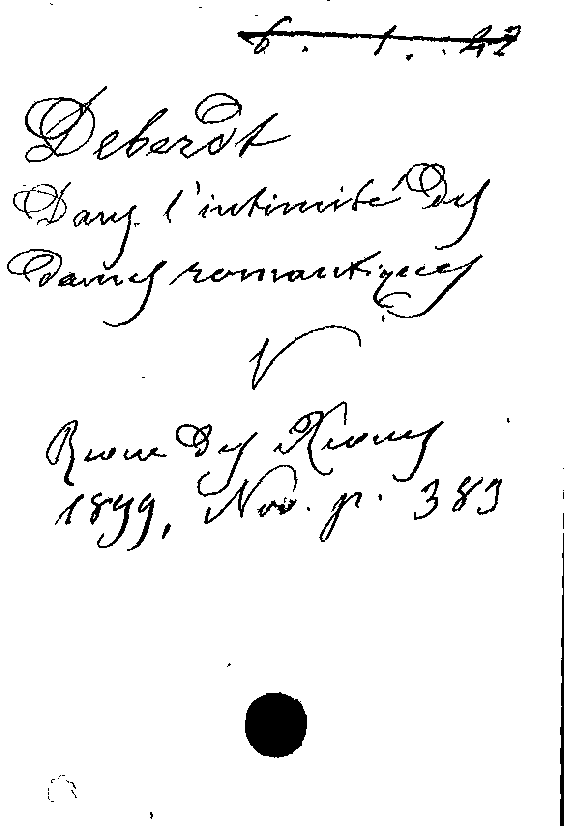 6. 1. 42
Deberdt
Dans l'intimité des
dames romantiques
V
Revue des Revues
1899, Nov. p. 383